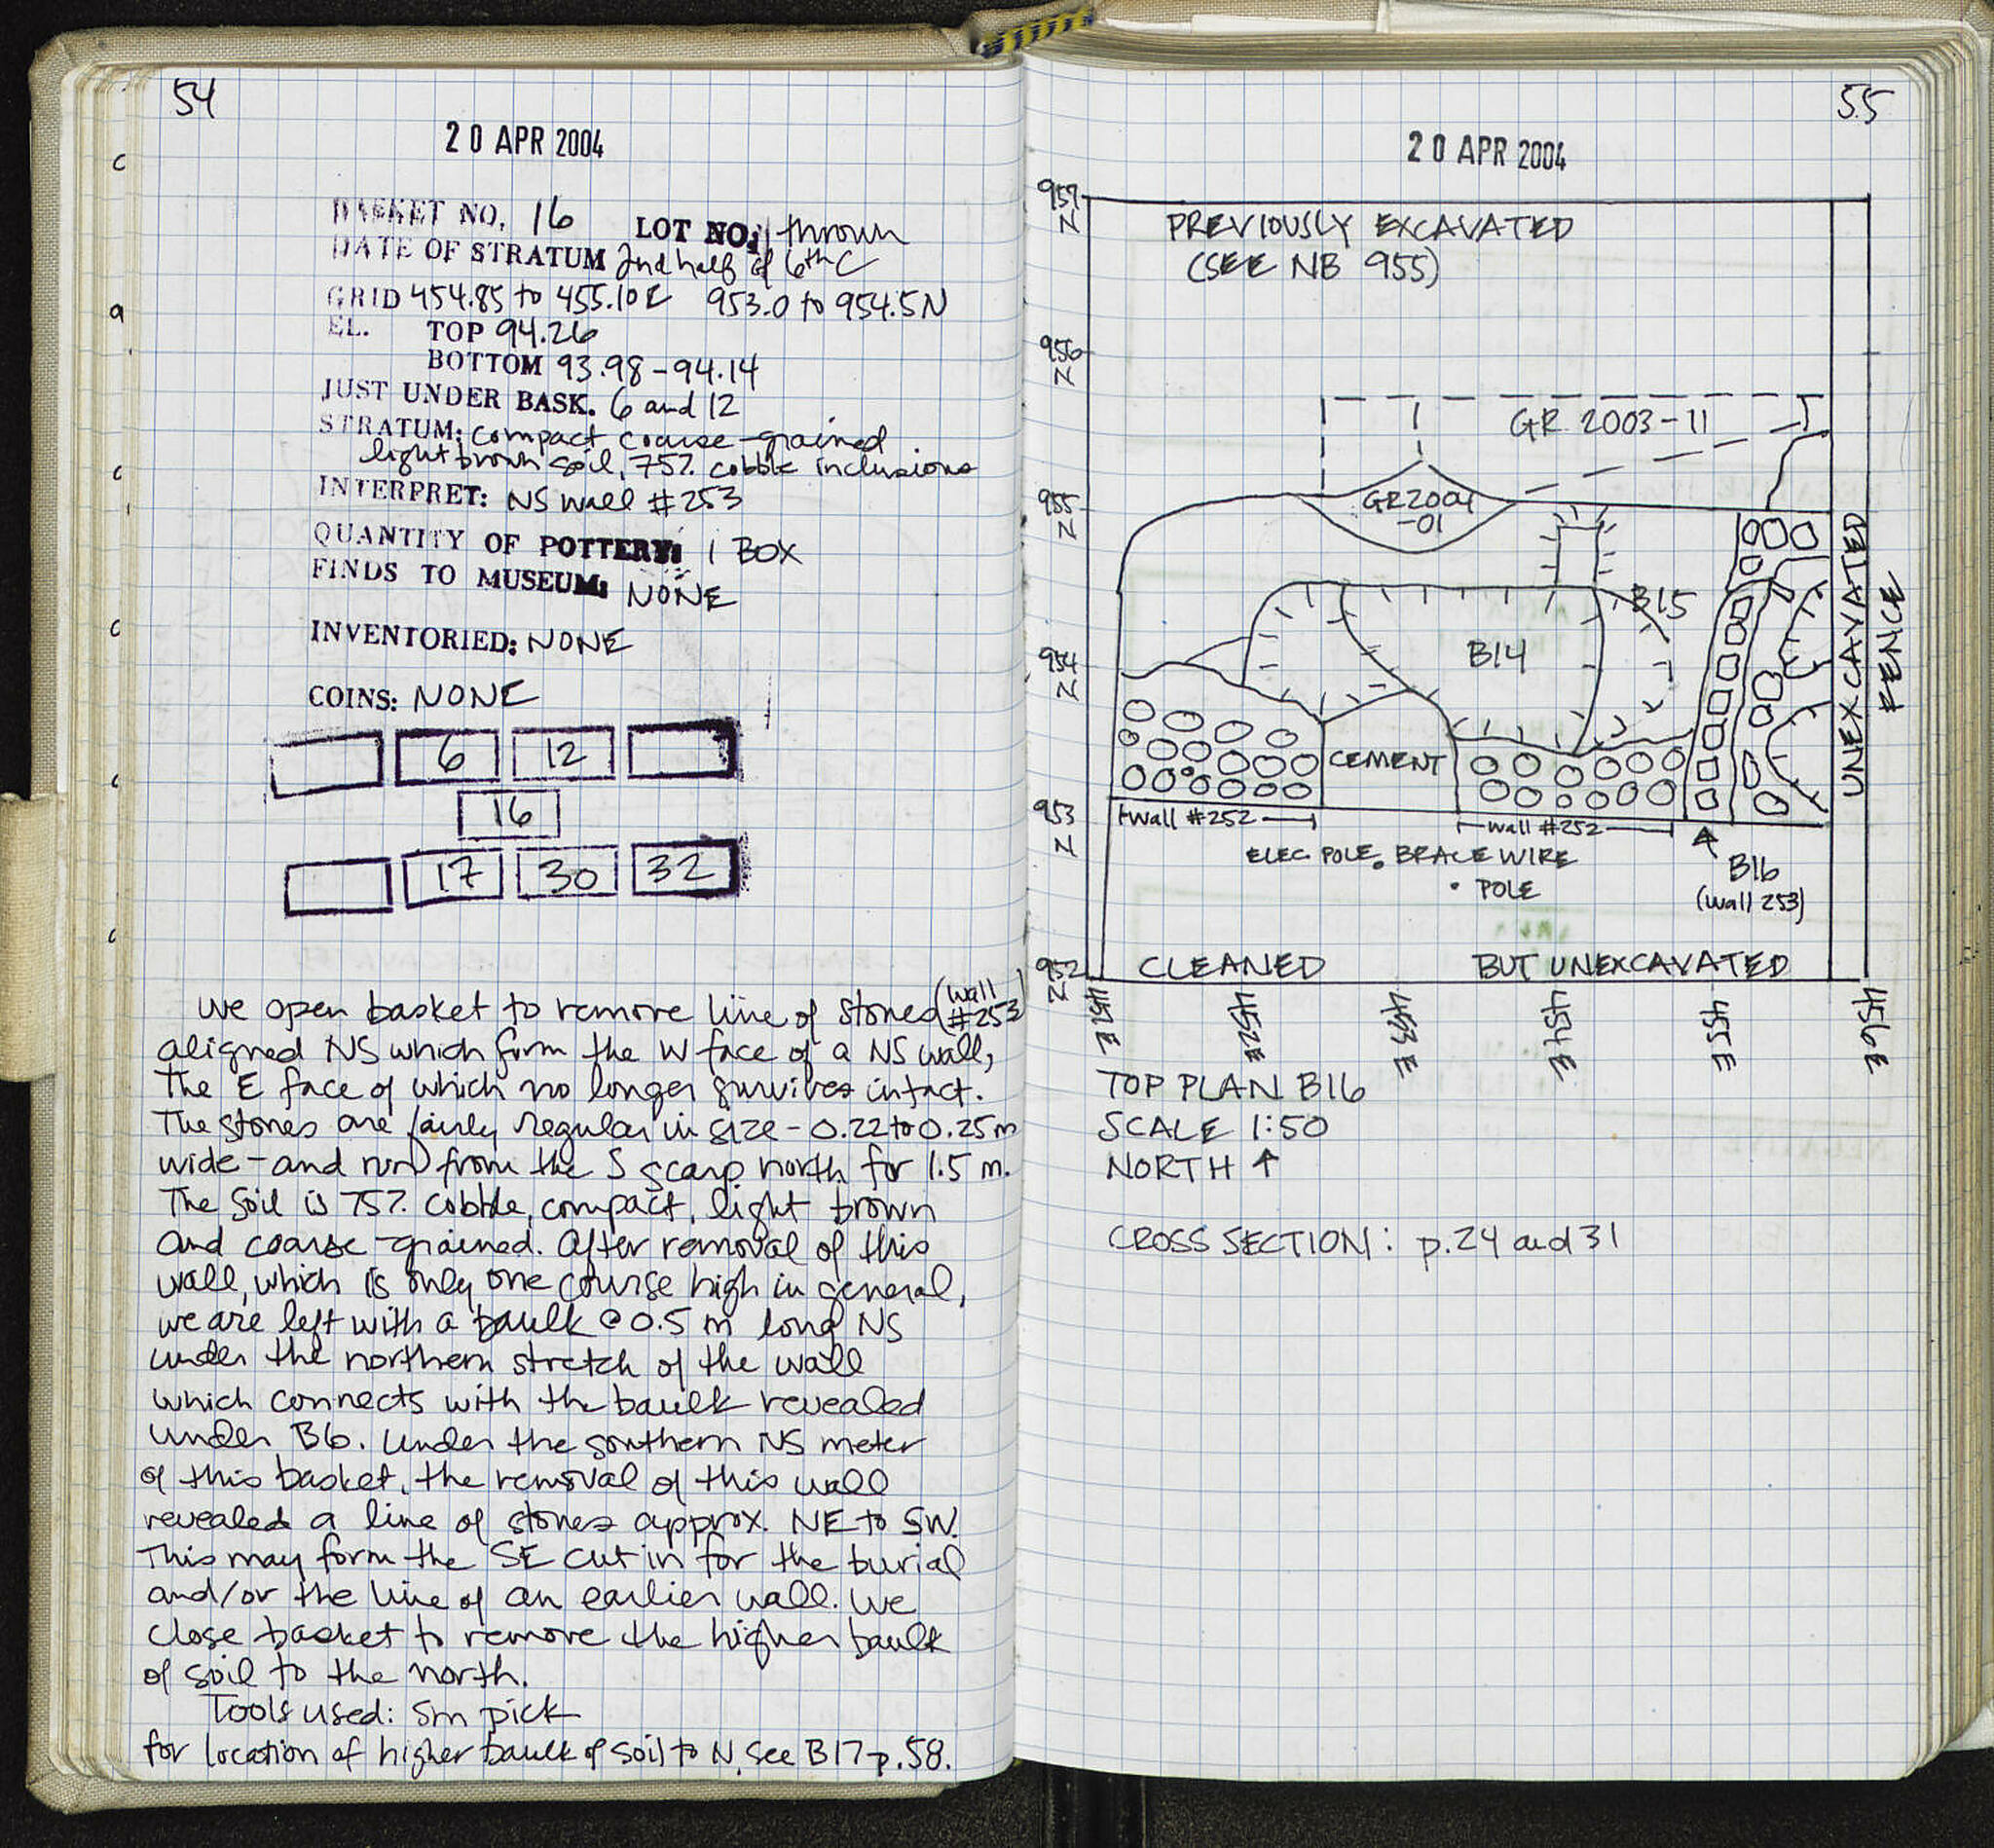 54
20 APR 2004
BASKET NO. 16 LOT NO: thrown
DATE OF STRATUM 2nd half of 6th C
GRID 454.85 to 455.10E 953.0 to 954.5N
EL. TOP 94.26
BOTTOM 93.98-94.14
JUST UNDER BASK. 6 and 12
STRATUM: compact coarse-grained
light brown soil, 75% cobble inclusions
INTERPRET: NS wall #253
QUANTITY OF POTTERY: 1 BOX
FINDS TO MUSEUM: NONE
INVENTORIED: NONE
COINS: NONE
6 12
16
17 30 32
we open basket to remove line of stones (wall #253)
aligned NS which form the W face of a NS wall,
the E face of which no longer survives intact.
The stones are fairly regular in size - 0.22 to 0.25m
wide - and run from the S scarp north for 1.5 m.
The soil is 75% cobble, compact, light brown
and coarse-grained. After removal of this
wall, which is only one course high in general,
we are left with a baulk @ 0.5 m long NS
under the northern stretch of the wall
which connects with the baulk revealed
under B6. Under the southern NS meter
of this basket, the removal of this wall
revealed a line of stones approx. NE to SW.
This may form the SE cut in for the burial
and/or the line of an earlier wall. We
close basket to remove the higher baulk
of soil to the north.
Tools used: sm pick
for location of higher baulk of soil to N, see B17 p.58.
55
20 APR 2004
957 N
PREVIOUSLY EXCAVATED
(SEE NB 955)
956 N
GR 2003-11
955 N
GR2004
-01
B15
954 N
B14
UNEXCAVATED
FENCE
CEMENT
953 N
wall #252
wall #252
ELEC POLE. BRACE WIRE
• POLE
B16
(wall 253)
952 N
CLEANED BUT UNEXCAVATED
451 E 452 E 453 E 454 E 455 E 456 E
TOP PLAN B16
SCALE 1:50
NORTH ↑
CROSS SECTION: p.24 and 31